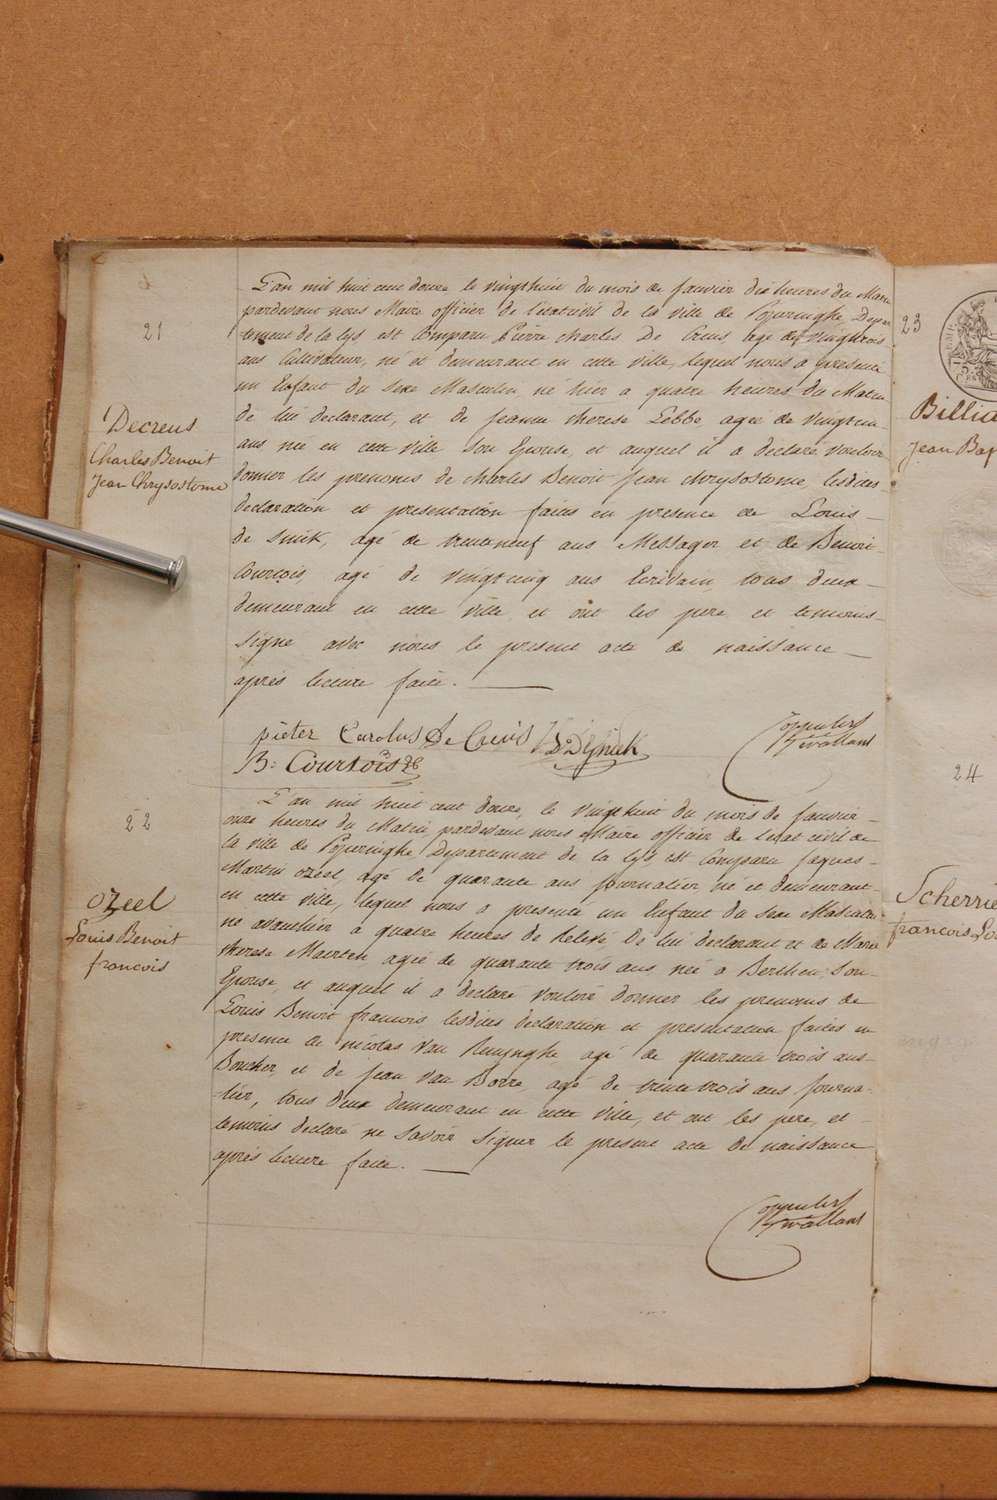 21
Decreus
Charles Benoit
Jean Chrysostome
L'an mil huit cent douze le vingthuit du mois de Janvier dix heures du Matin
pardevant nous Maire officier de l'état civil de la ville de Poperinghe Depar-
tement de la lys est Comparu Pierre Charles De Creus, agé de vingttrois
ans Cultivateur, né et demeurant en cette ville, lequel nous a presenté
un Enfant du sexe Masculin né hier a quatre heures du Matin
de lui declarant, et de Jeanne therese Lebbe agée de vingtun
ans née en cette ville son Epouse, et auquel il a declaré vouloir
donner les prenoms de Charles Benoit Jean Chrysostome, lesdites
declaration et presentation faites en presence de Louis
de Snick, agé de trenteneuf ans Messager et de Benoit
Courtois, agé de vingtcinq ans Ecrivain, tous deux
demeurant en cette ville, et ont les pere et temoins
signé avec nous le present acte de naissance
après lecture faite.
pieter Carolus De Creus
B: Courtois
22
ozeel
Louis Benoit
francois
L'an mil huit cent douze, le vingthuit du mois de Janvier
onze heures du Matin, pardevant nous Maire officier de l'etat civil de
la ville de Poperinghe Departement de la lys est Comparu Jaques
Martin ozeel, agé de quarante ans Journalier né et demeurant
en cette ville, lequel nous a presenté un Enfant du sexe Masculin
né avanthier a quatre heures de Relevé De lui declarant et de Marie
therese Maerten agée de quarante trois ans née a Berthen, Son
Epouse, et auquel il a declaré vouloir donner les prenoms de
Louis Benoit francois lesdites declaration et presentation faites en
presence de nicolas Van Renynghe, agé de quarante trois ans
Boucher, et de Jean Van Borre, agé de trentetrois ans Journa-
lier, tous deux demeurant en cette ville, et ont les pere, et
temoins declaré ne savoir signer le present acte de naissance
après lecture faite.
23
Billia
Jean Bap
24
Scherrie
francois Lo